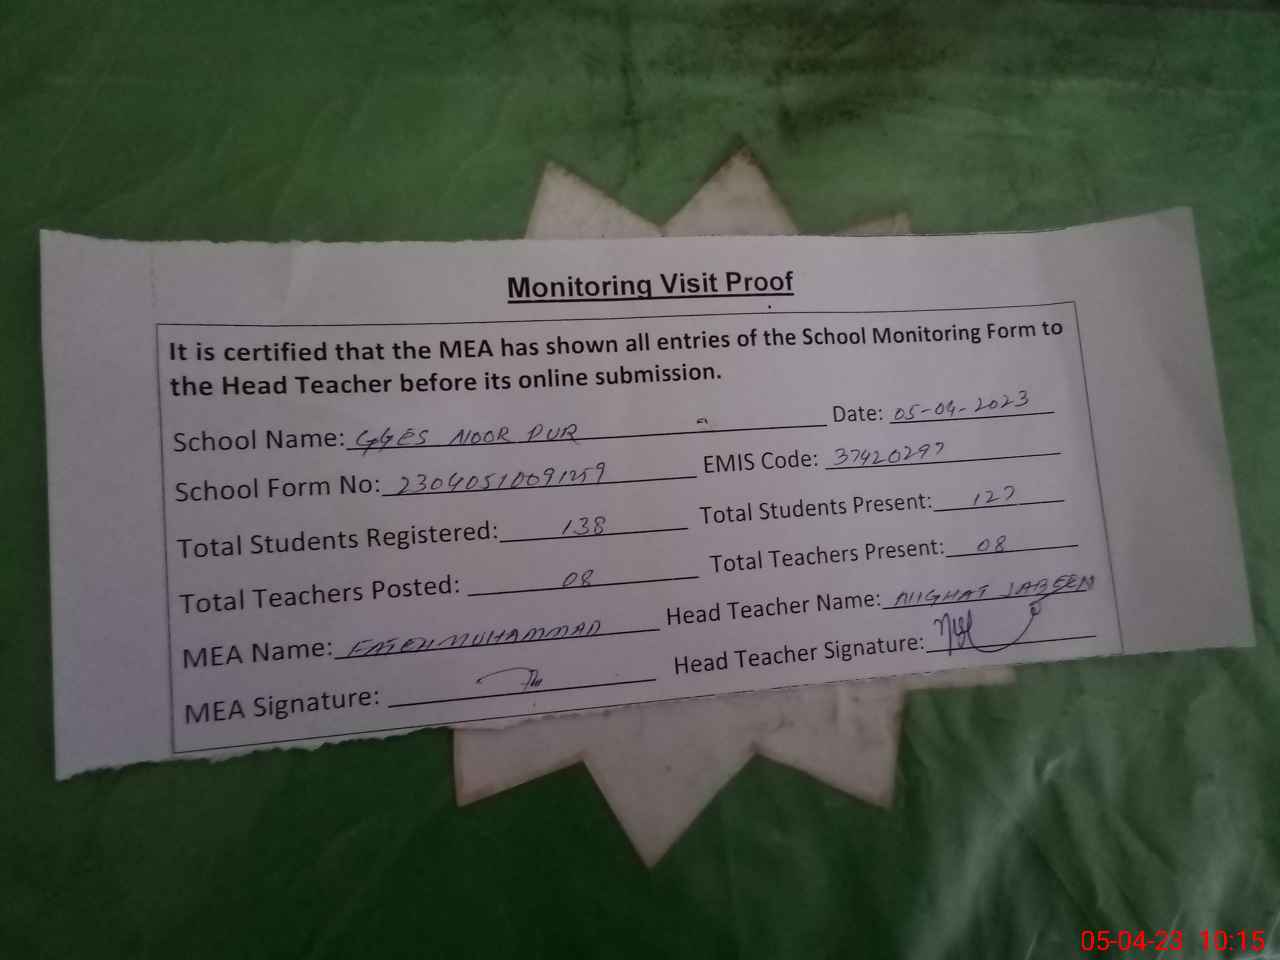 Monitoring Visit Proof
It is certified that the MEA has shown all entries of the School Monitoring Form to
the Head Teacher before its online submission.
School Name: GGES NOOR PUR Date: 05-04-2023
School Form No: 23040510091259 EMIS Code: 37420297
Total Students Registered: 138 Total Students Present: 127
Total Teachers Posted: 08 Total Teachers Present: 08
MEA Name: FATEH MUHAMMAD Head Teacher Name: NIGHAT JABEEN
MEA Signature: Head Teacher Signature:
05-04-23 10:15